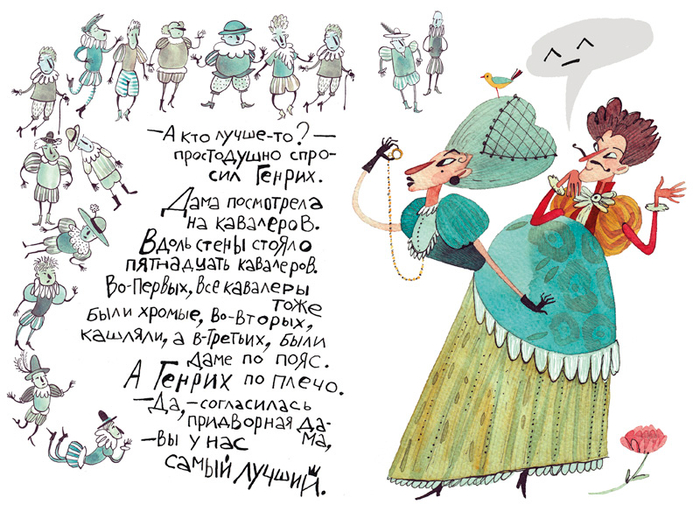 —А кто лучше-то?—
простодушно спро-
сил Генрих.
Дама посмотрела
на кавалеров.
Вдоль стены стояло
пятнадцать кавалеров.
Во-первых, все кавалеры
тоже
были хромые, во-вторых,
кашляли, а в-третьих, были
даме по пояс.
А Генрих по плечо.
—Да,—согласилась
придворная да-
ма,
—вы у нас
самый лучший.